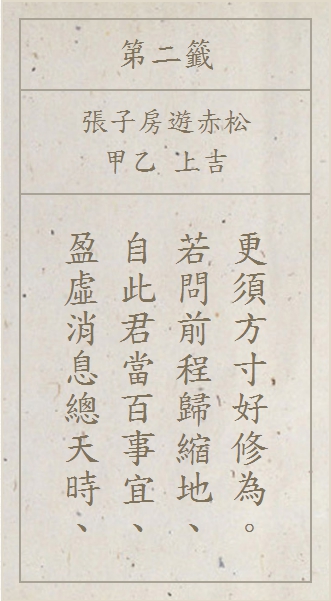 第二籤
張子房遊赤松
甲乙 上吉
盈虛消息總天時、
自此君當百事宜、
若問前程歸縮地、
更須方寸好修為。